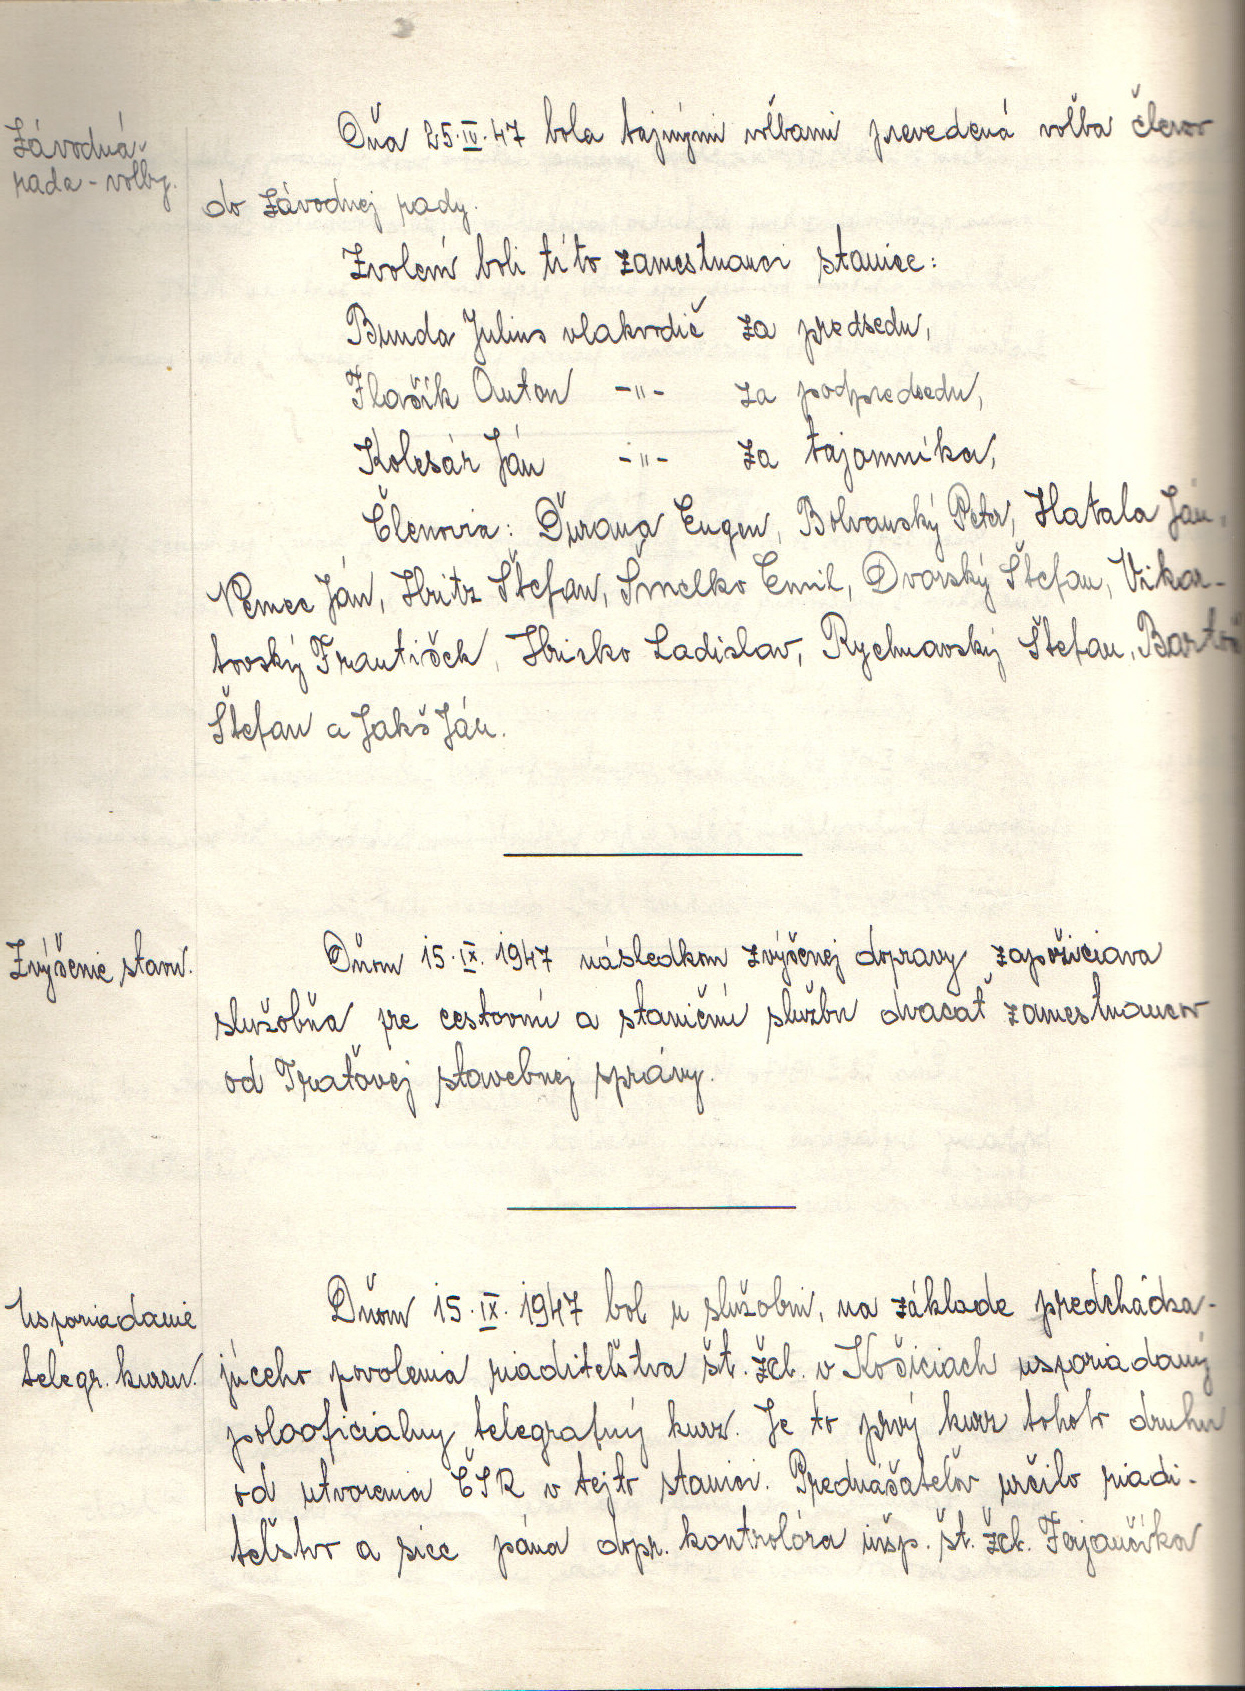 Závodná
rada - voľby.
Dňa 25.IV.47 bola tajnými voľbami prevedená voľba členov
do Závodnej rady.
Zvolení boli títo zamestnanci stanice:
Bunda Julius vlakvodič za predsedu,
Flaščík Anton -"- za podpredsedu,
Kolesár Ján -"- za tajomníka,
Členovia: Ďurana Eugen, Bolvanský Peter, Hatala Ján,
Nemec Ján, Hritz Štefan, Šmelko Emil, Dvorský Štefan, Vikar-
tovský František, Hrisko Ladislav, Rychnavský Štefan, Bartoš
Štefan a Jakš Ján.
Zvýšenie stavu.
Dňom 15.IX.1947 následkom zvýšenej dopravy zapožičiava
služobňa pre cestovnú a staničnú službu dvacať zamestnancov
od Traťovej stavebnej správy.
Usporiadanie
telegr. kurzu.
Dňom 15.IX.1947 bol u služobni, na základe predchádza-
júceho povolenia riaditeľstva št. žel. v Košiciach usporiadaný
polooficiálny telegrafný kurz. Je to prvý kurz tohoto druhu
od utvorenia ČSR v tejto stanici. Prednášateľov určilo riadi-
teľstvo a síce pána dopr. kontrolóra inšp. št. žel. Ferjančíka